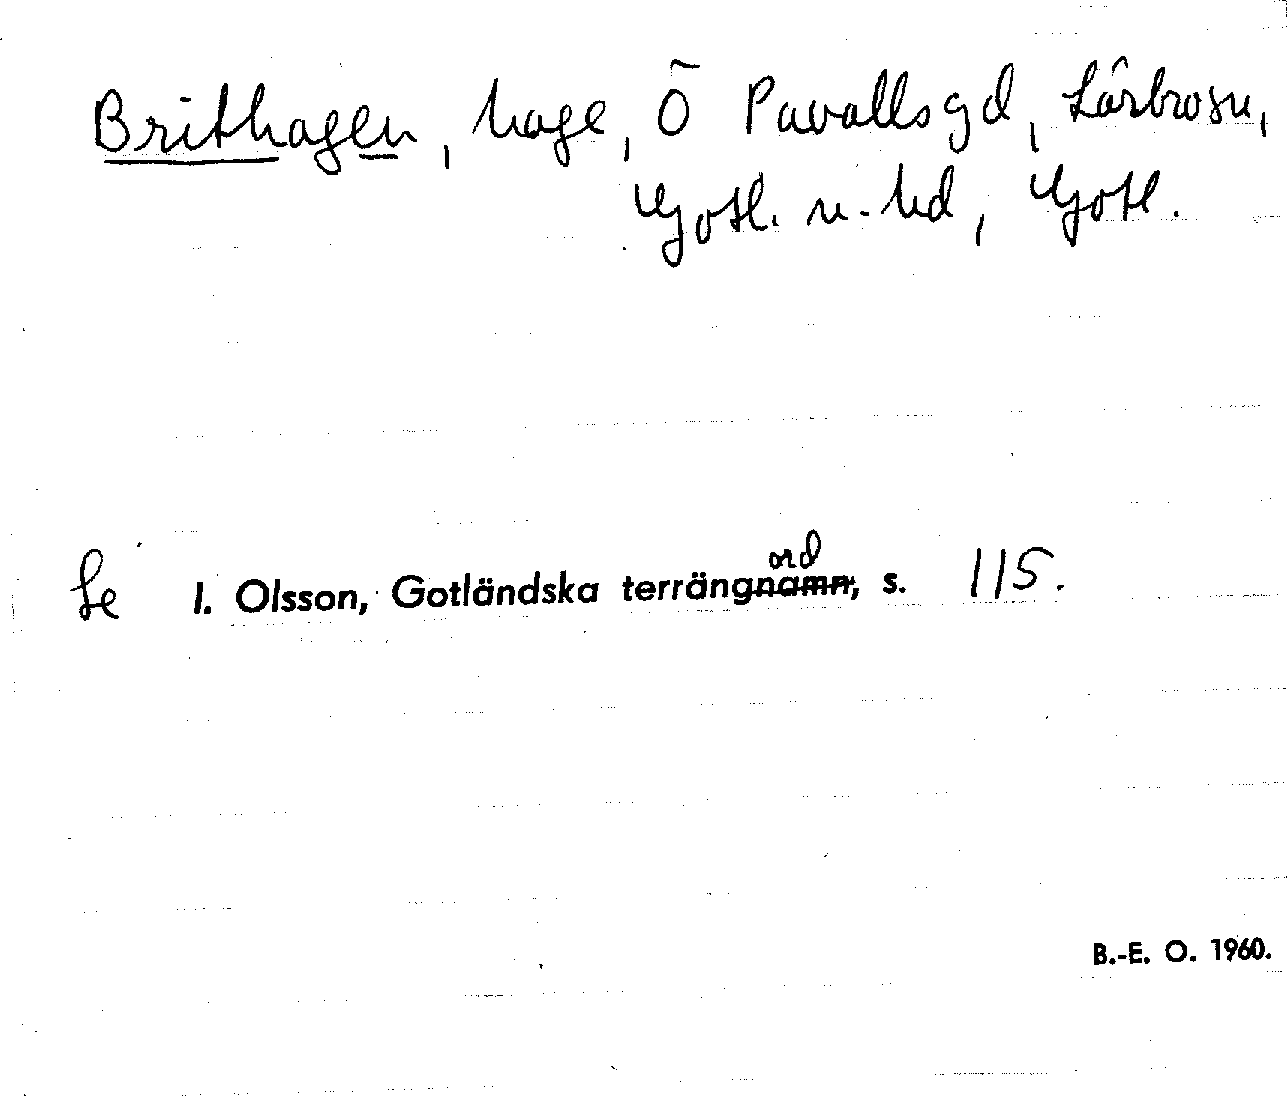 Brithagen, hage, Ö Pavallsgd, Lärbrosn,
Gotl. n. hd, Gotl.
ord
Se I. Olsson, Gotländska terrängnamn, s. 115.
B.-E. O. 1960.